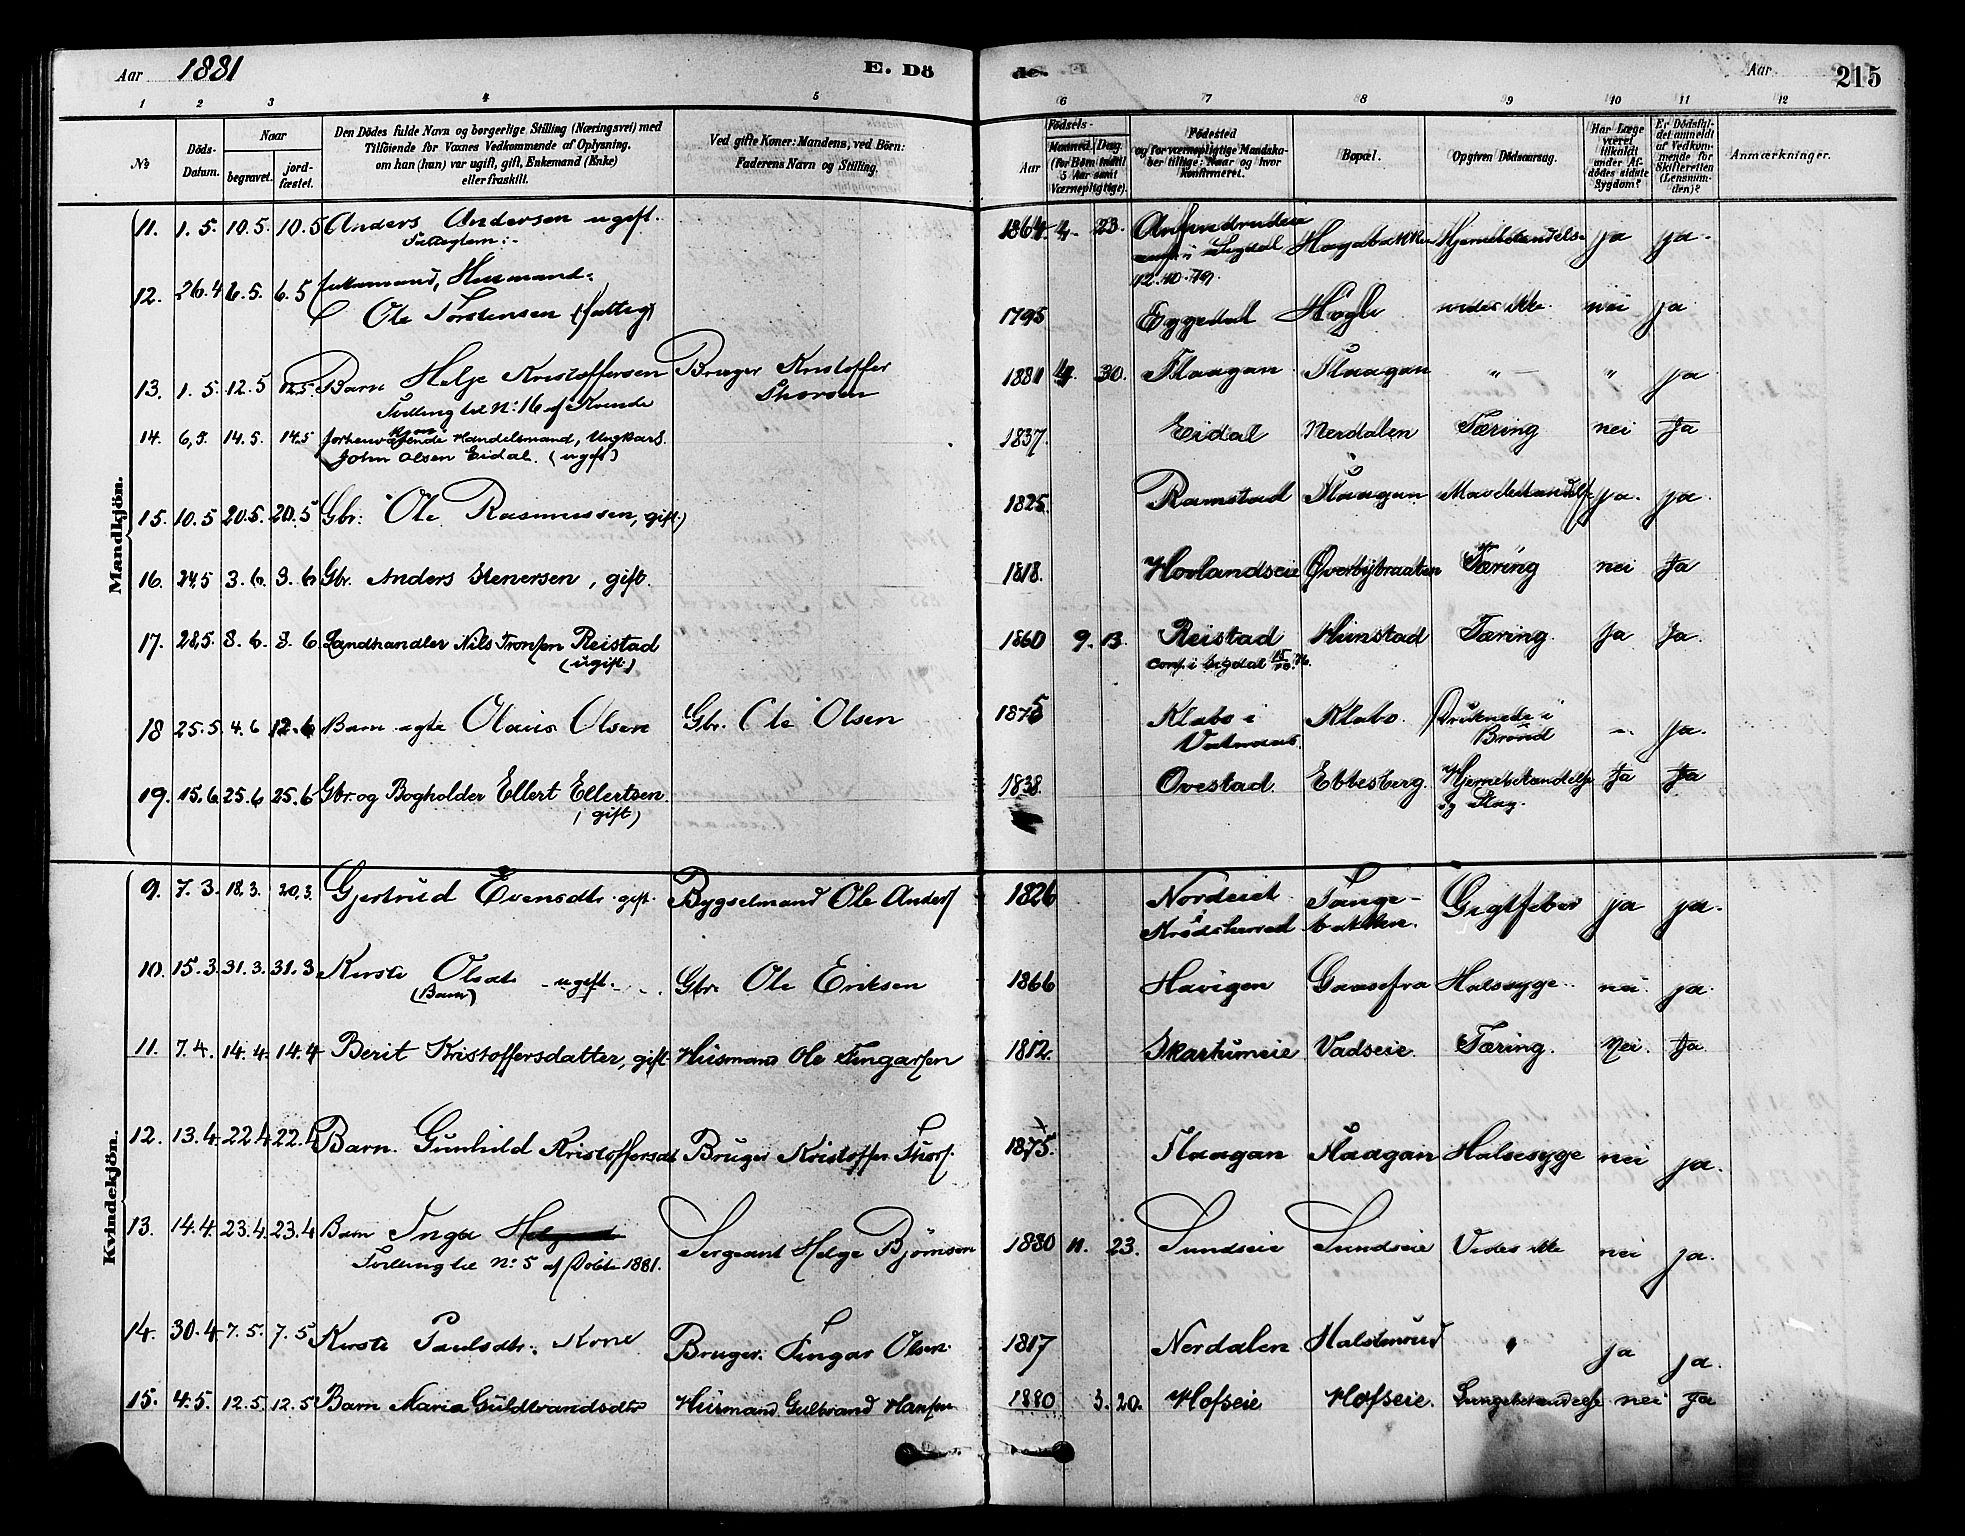 Aar 1881 E. Döde. Aar 215
1 2 3 4 5 6 7 8 9 10 11 12
No Döds-Datum. Naar begravet. jord-fæstet. Den Dödes fulde Navn og borgerlige Stilling (Næringsvei) med Tilföiende for Voxnes Vedkommende af Oplysning, om han (hun) var ugift, gift, Enkemand (Enke) eller fraskilt. Ved gifte Koner: Mandens, ved Börn: Faderens Navn og Stilling. Födsels- Aar Maaned Dag (for Börn indtil 5 Aar samt Værnepligtige). Födested og for værnepligtige Mandskaber tillige: Naar og hvor konfirmeret. Bopæl. Opgiven Dödsaarsag. Har Læge været tilkaldt under Afdödes sidste Sygdom? Er Dödsfaldet anmeldt af Vedkommende for Skifteretten (Lensmanden)? Anmærkninger.
Mandkjön.
11. 1. 5. 10. 5. 10. 5 Anders Andersen ugift. 1864. 23. ja ja.
i Sigdal
12. 10. 79.
12. 26. 4 6. 5. 6. 5
Ole Torstensen (fattig) 1795 Eggedal Hagle vides ikke nei ja
13. 1. 5. 12. 5 12.5. Barn Helge Kristoffersen Bruger Kristoffer Thorsen 1881 4. 30. Flaagan Flaagan " " ja
Tvilling til No: 16 af Kvinde
14. 6, 5. 14. 5. 14. 5 forhenværende Handelsmand, Ungkarl 1837. Eidal Nerdalen Tæring nei Ja
John Olsen Eidal. (ugift)
15. 10. 5 20. 5. 20. 5 Gbr: Ole Rasmussen, gift.) 1825. Ramstad Flaagan ja. ja
16. 24.5 3. 6. 3. 6 Gbr. Anders Stenersen, gift. 1818. Hovlandseie Øverbybraaten Tæring nei Ja
17. 28.5. 8. 6. 8. 6 Landhandler Nils Tronsen Reistad 1860 9. 13. Reistad Hunstad Tæring. Ja Ja.
(ugift.) conf. i Sigdal 15/10. 76.
18 25. 5. 4. 6 12. 6 Barn ægte Olaus Olsen Gbr. Ole Olsen 1875 Klabo i Klabo. Druknede i Brönd ja.
19. 15. 6. 25. 6 25. 6 Gbr. og Bogholder Ellert Ellertsen. 1838. Ovestad. Ebbesberg. Hjernebetændelse og Slag. Ja Ja
(gift)
Kvindekjön.
9. 7. 3. 18. 3. 20, 3. Gjertrud Evensdtr. gift. Bygselmand Ole Anders 1826 Nordeiet i Krödsherred Tange-bakken. Gigtfeber ja ja.
10. 15. 3. 31. 3. 31. 3 Kirsti Olsdtr ugift. Gbr. Ole Eriksen 1866 Havigen Gaasefra Halssyge. nei. ja.
(Barn)
11. 7. 4. 14. 4. 14. 4 Berit Kristoffersdatter, gift Husmand Ole Fingarsen 1812. Skartumeie Vadseie. Tæring. Nei. Ja
12. 13. 4. 22. 4. 22. 4 Barn. Gunhild Kristoffersdt Bruger Kristoffer Thors. 1875. Flaagan Flaagan Halssyge nei ja.
13. 14. 4. 23. 4. 23. 4 Barn Inga Sergeant Helge Björnsen 1880 11. 23. Sundseie Sundseie Vides ikke nei ja.
Tvilling til No: 5 af Döbte 1881.
14. 30. 4 7. 5. 7. 5 Kirsti Paulsdtr. Kone Bruger. Fingar Olsen. 1817 Nerdalen Halstenrud " ja ja.
15. 4. 5. 12. 5. 12. 5 Barn Maria Guldbrandsdtr Husmand Gulbrand Hansen 1880 3. 20. Hofseie Hofseie. Lungebetændelse nei Ja